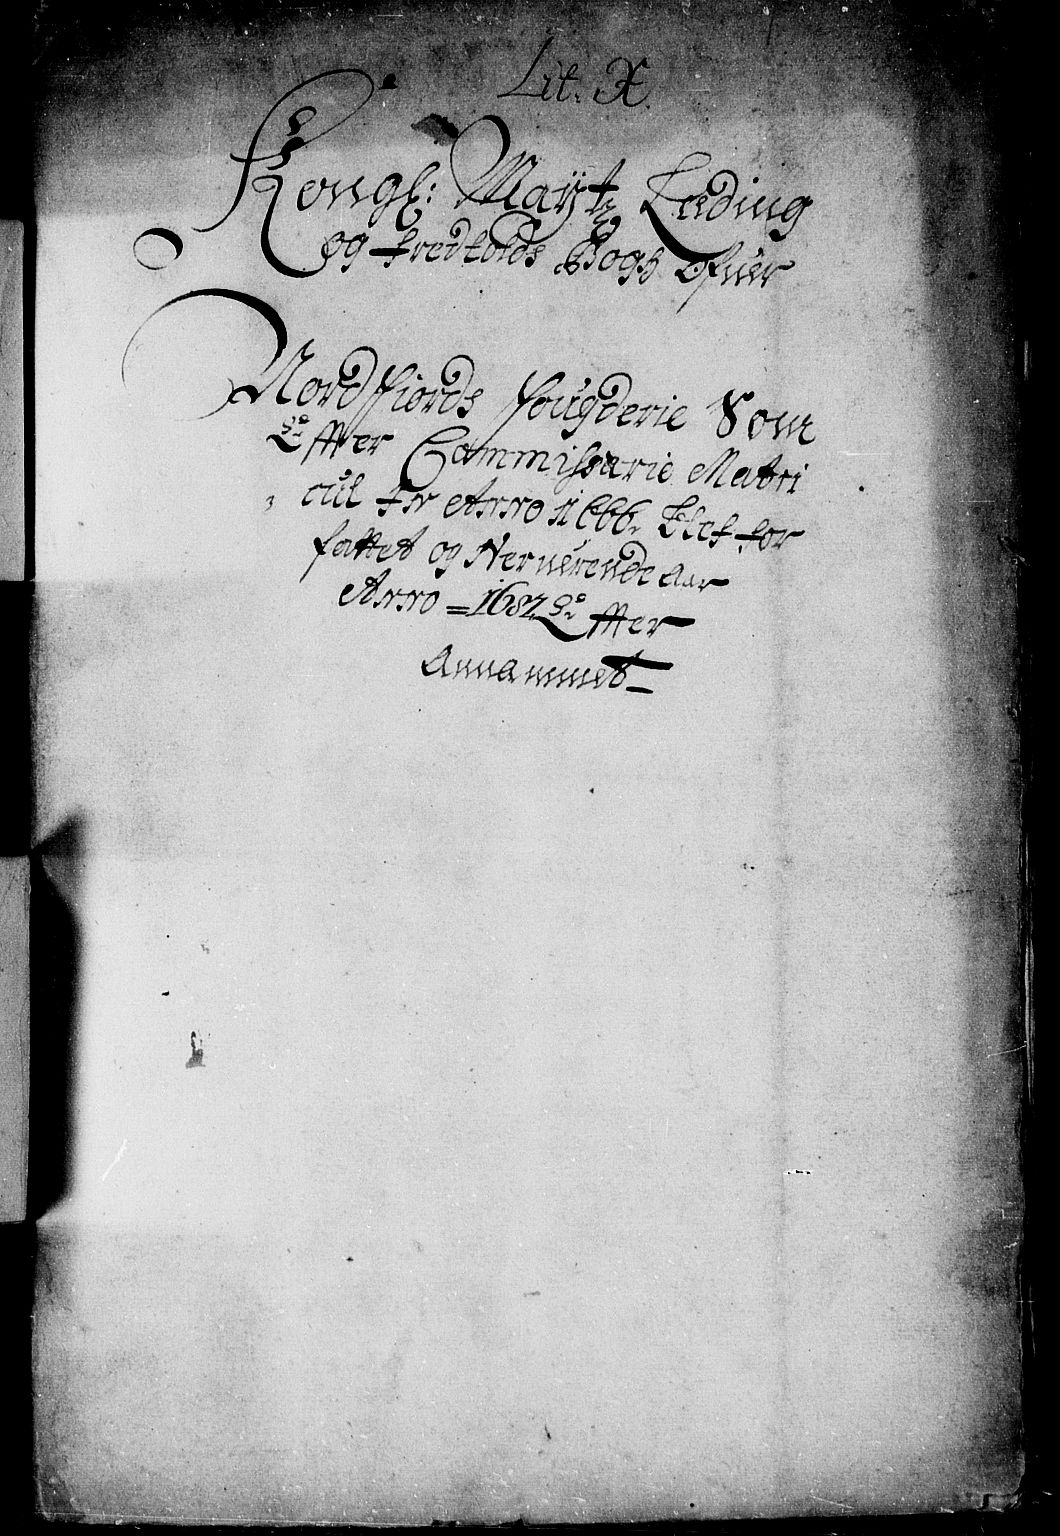 Lit. X.
Kongl: Maytz Leding
og fredtolds Bogh ofuer
Nordfiords fougderie Som
Effter Commissarie Matri
cul fr Anno 1666 blef for
fattet og Neruerende aar
Anno = 1682 Effter
Annammet